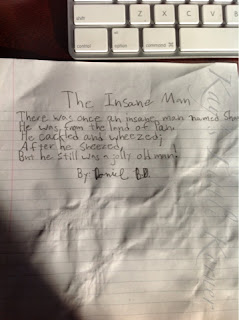 Z X C V
control option command ⌘
The Insane Man
There was once an insane man named
He was from the land of Pan,
He cackled and wheezed;
After he sneezed,
But he still was a jolly old man!
By Daniel